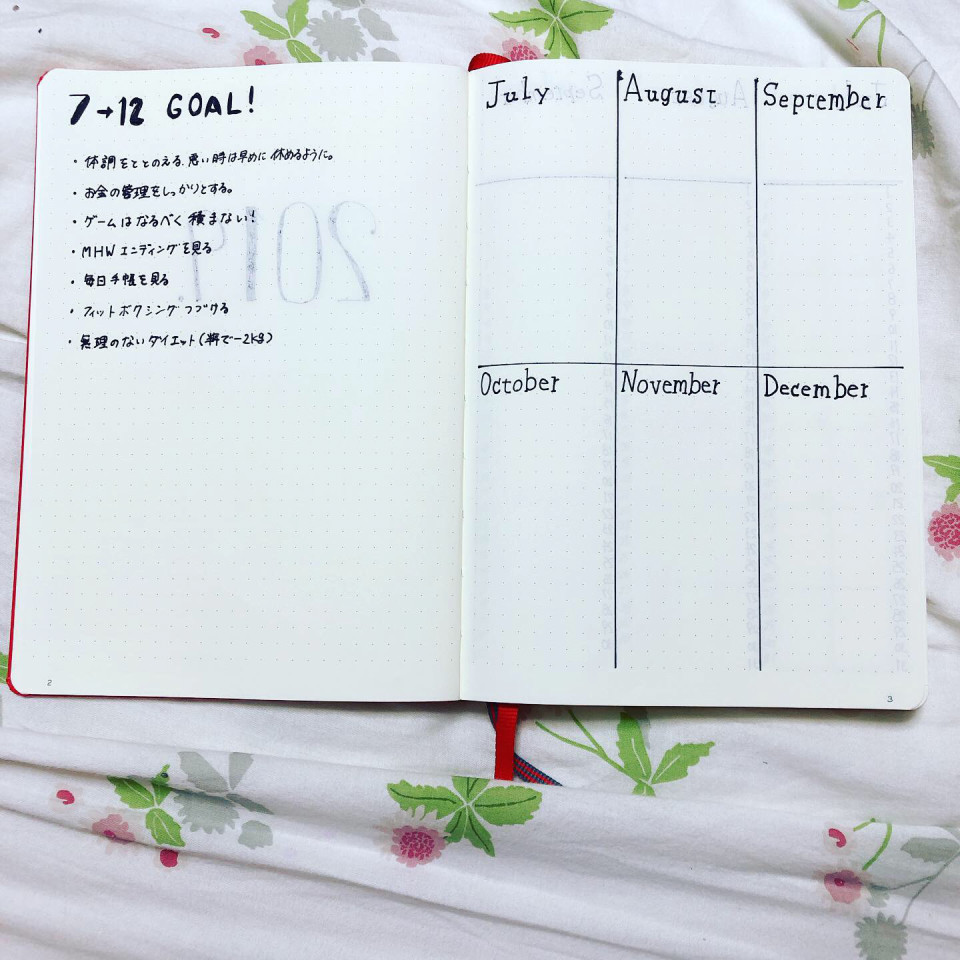 7→12 GOAL!
・体調をととのえる.悪い時は早めに休めるように。
・お金の管理をしっかりとする。
・ゲームはなるべく積まない!
・MHWエンディングを見る
・毎日手帳を見る
・フィットボクシングつづける
・無理のないダイエット(半年で-2kg)
2019.
2
July
August
September
October
November
December
3